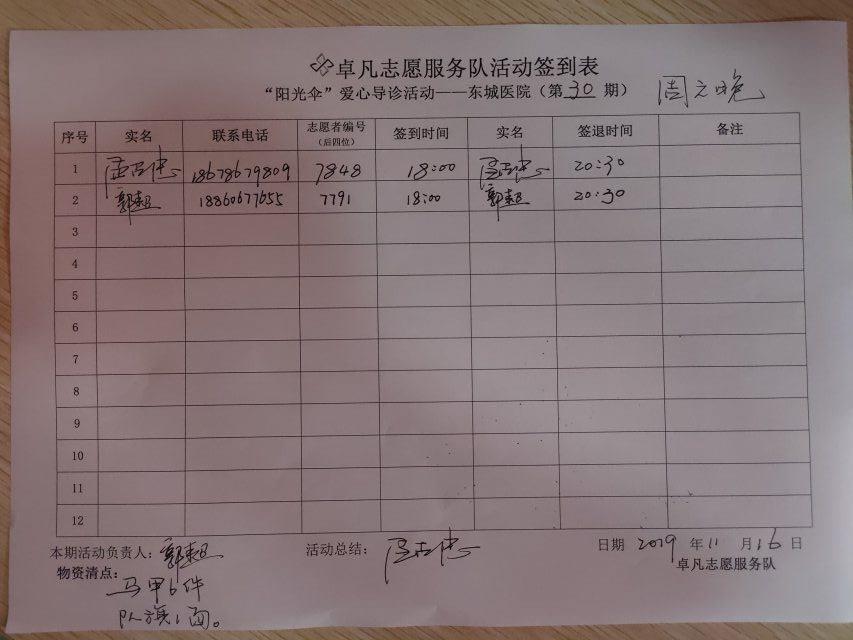 卓凡志愿服务队活动签到表
“阳光伞”爱心导诊活动——东城医院（第30期） 周六晚
序号 实名 联系电话 志愿者编号（后四位） 签到时间 实名 签退时间 备注
1 18678679809 7848 18:00 20:30
2 郭超 18860677655 7791 18:00 郭超 20:30
3
4
5
6
7
8
9
10
11
12
本期活动负责人：郭超 活动总结： 日期 2019 年 11 月 16 日
物资清点： 卓凡志愿服务队
马甲6件
队旗1面。